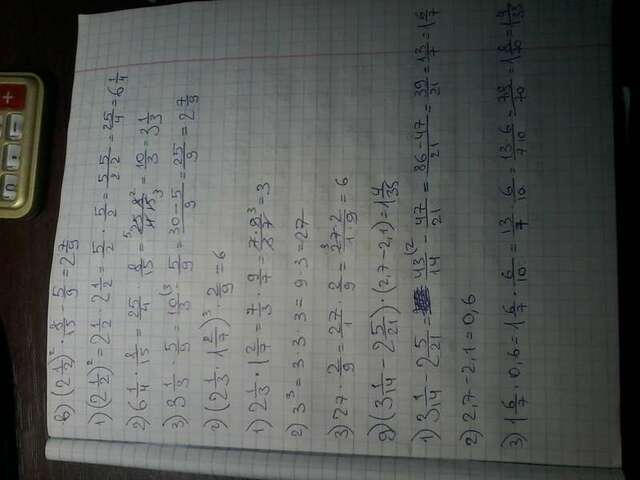 в) (2 1/2)² · 8/15 - 5/9 = 2 7/9
1) (2 1/2)² = 2 1/2 · 2 1/2 = 5/2 · 5/2 = 5 5/2 2 = 25/4 = 6 1/4
2) 6 1/4 · 8/15 = 25/4 · 8/15 = 25 8/4 15 = 10/3 = 3 1/3
3) 3 1/3 - 5/9 = 10/3 - 5/9 = 30-5/9 = 25/9 = 2 7/9
г) (2 1/3 · 1 2/7)³ · 2/9 = 6
1) 2 1/3 · 1 2/7 = 7/3 · 9/7 = 7·9/3·7 = 3
2) 3³ = 3·3·3 = 9·3 = 27
3) 27 · 2/9 = 27/1 · 2/9 = 27·2/1·9 = 6
д) (3 1/14 - 2 5/21) · (2,7-2,1) = 1 4/35
1) 3 1/14 - 2 5/21 = 43/14 - 47/21 = 86-47/21 = 39/21 = 13/7 = 1 6/7
2) 2,7-2,1 = 0,6
3) 1 6/7 · 0,6 = 1 6/7 · 6/10 = 13/7 · 6/10 = 13·6/7 10 = 78/70 = 1 8/70 = 1 4/35